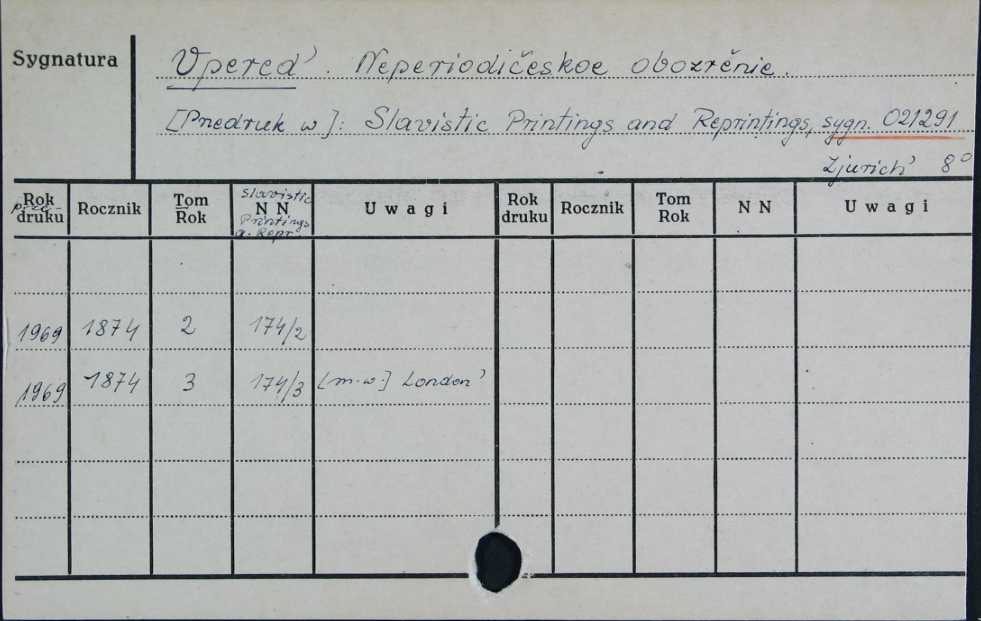 Sygnatura
Vpered'. Neperiodičeskoe obozrěnie.
[Przedruk w]: Slavistic Printings and Reprintings, sygn. 021291
Zjurich' 8°
Rok prze-druku Rocznik Tom Rok Slavistic NN Printings a. Repr. Uwagi Rok druku Rocznik Tom Rok NN Uwagi
1969 1874 2 174/2
1969 1874 3 174/3 [m.w.] London'